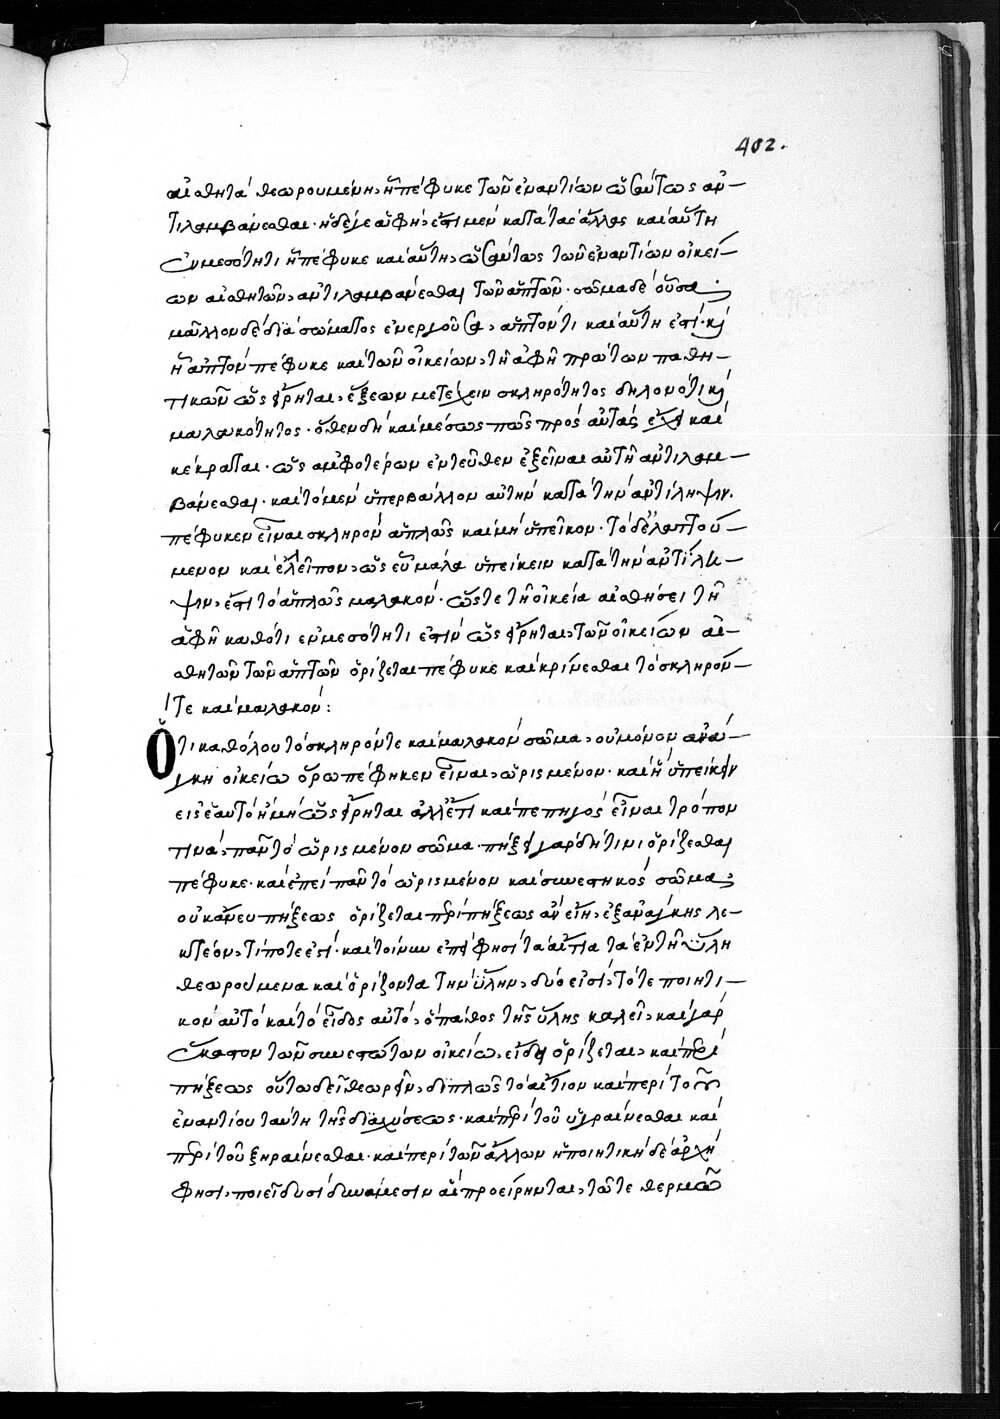 402.
αἰσθητὰ θεωρουμένη, ᾗ πέφυκε τῶν ἐναντίων ὡσαύτως ἀν-
τιλαμβάνεσθαι· ἡ δέ γε ἁφή, ἔστι μὲν κατὰ τὰς ἄλλας καὶ αὕτη
ἐν μεσότητι ᾗ πέφυκε καὶ αὕτη, ὡσαύτως τῶν ἐναντίων οἰκεί-
ων αἰσθητῶν, ἀντιλαμβάνεσθαι τῶν ἁπτῶν· σῶμα δὲ οὖσα,
μᾶλλον δὲ διὰ σώματος ἐνεργοῦσα, ἁπτόν τι καὶ αὕτη ἐστί· καὶ
ᾗ ἁπτὸν πέφυκε καὶ τῶν οἰκείων, τῇ ἁφῇ πρώτων παθη-
τικῶν ὡς εἴρηται, ἕξεων μετέχειν σκληρότητος δηλονότι καὶ
μαλακότητος· ὅθεν δὴ καὶ μέσως πως πρὸς αὐτὰς ἔχει καὶ
κέκραται· ὡς ἀμφοτέρων ἐντεῦθεν ἐξεῖναι αὐτῇ ἀντιλαμ-
βάνεσθαι· καὶ τὸ μὲν ὑπερβάλλον αὐτὴν κατὰ τὴν ἀντίληψιν.
πέφυκεν εἶναι σκληρὸν ἁπλῶς καὶ μὴ ὑπεῖκον· τὸ δ' ἐλαττού-
μενον καὶ ἐλλεῖπον, ὡς εὖ μάλα ὑπείκειν κατὰ τὴν ἀντίλη-
ψιν, ἔστι τὸ ἁπλῶς μαλακόν· ὥστε τῇ οἰκεία αἰσθήσει τῇ
ἁφῇ καθότι ἐν μεσότητι ἐστὶν ὡς εἴρηται, τῶν οἰκείων αἰ-
σθητῶν τῶν ἁπτῶν ὁρίζεται πέφυκε καὶ κρίνεσθαι τὸ σκληρόν
τε καὶ μαλακόν:
Ὅτι καθόλου τὸ σκληρόν τε καὶ μαλακὸν σῶμα, οὐ μόνον ἀνάγ-
κη οἰκείω ὅρω πέφηκεν εἶναι, ὡρισμένον· καὶ ἢ ὑπείκειν
εἰς ἑαυτὸ ἢ μὴ ὡς εἴρηται ἀλλ' ἔτι καὶ πεπηγὸς εἶναι τρόπον
τινὰ, πᾶν τὸ ὡρισμένον σῶμα· πήξει γὰρ δή τινι ὁρίζεσθαι
πέφυκε· καὶ ἐπεὶ πᾶν τὸ ὡρισμένον καὶ συνεστηκὸς σῶμα,
οὐκ ἄνευ πήξεως ὁρίζεται περὶ πήξεως ἂν εἴη, ἐξανάγκης λε-
κτέον, τί ποτε ἐστί· καὶ τοίνυν ἐπεὶ φησὶ τὰ αἴτια τὰ ἐν τῇ ὕλη
θεωρούμενα καὶ ὁρίζοντα τὴν ὕλην, δύο εἰσὶ, τό τε ποιητι-
κὸν αὐτὸ καὶ τὸ εἶδος αὐτὸ, ὃ πάθος τῆς ὕλης καλεῖ, καὶ γὰρ
ἕκαστον τῶν συνεστώτων οἰκείω, εἴδει ὁρίζεται, καὶ περὶ
πήξεως οὕτω δεῖ θεωρεῖν, διπλῶς τὸ αἴτιον καὶ περὶ τοῦ
ἐναντίου ταύτη τῆς διαλύσεως· καὶ περὶ τοῦ ὑγραίνεσθαι καὶ
περὶ τοῦ ξηραίνεσθαι· καὶ περὶ τῶν ἄλλων ἡ ποιητικὴ δὲ ἀρχή
φησι, ποιεῖ δυσὶ δυνάμεσιν αἳ προείρηνται, τῶ τε θερμῶ